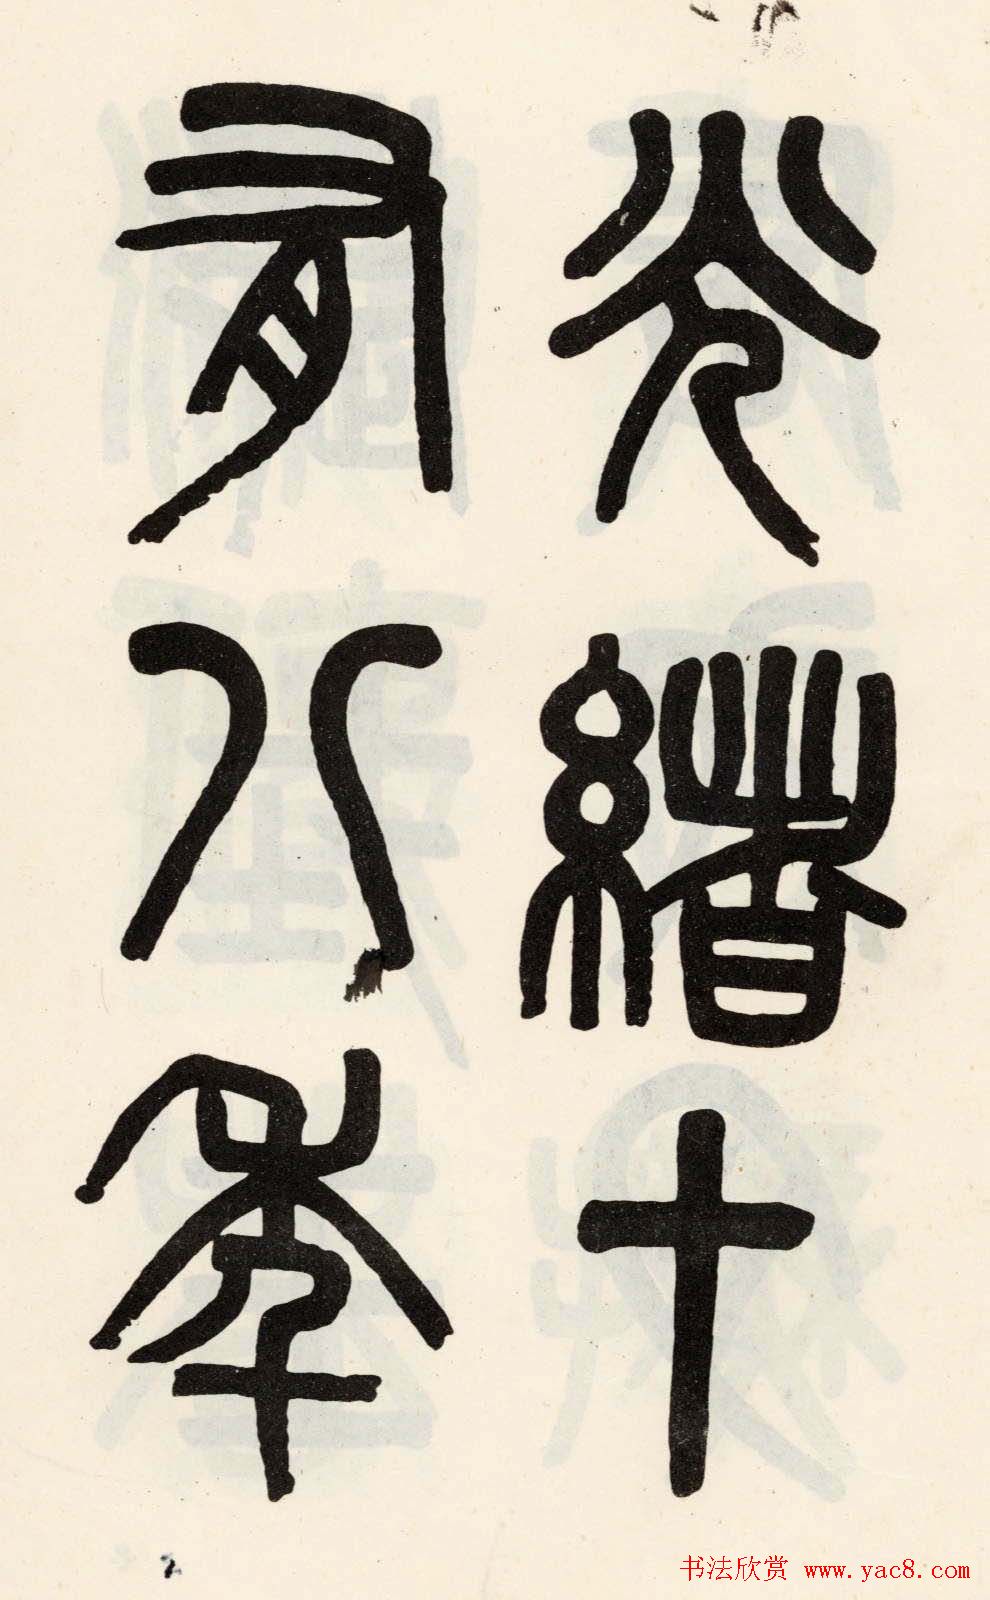 光緒十
有八年
书法欣赏 www.yac8.com